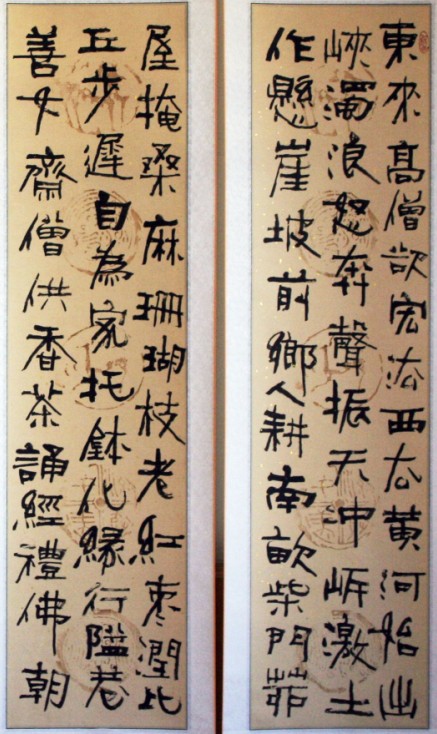 東來高僧欲宏法西去黄河始出
峽濁浪怒奔聲振天沖岍激土
作懸崖坡前鄉人耕南畝柴門茆
屋掩桑麻珊瑚枝老紅枣潤比
丘步遲自為家托鉢化緣行隘巷
善女齋僧供香茶誦經禮佛朝